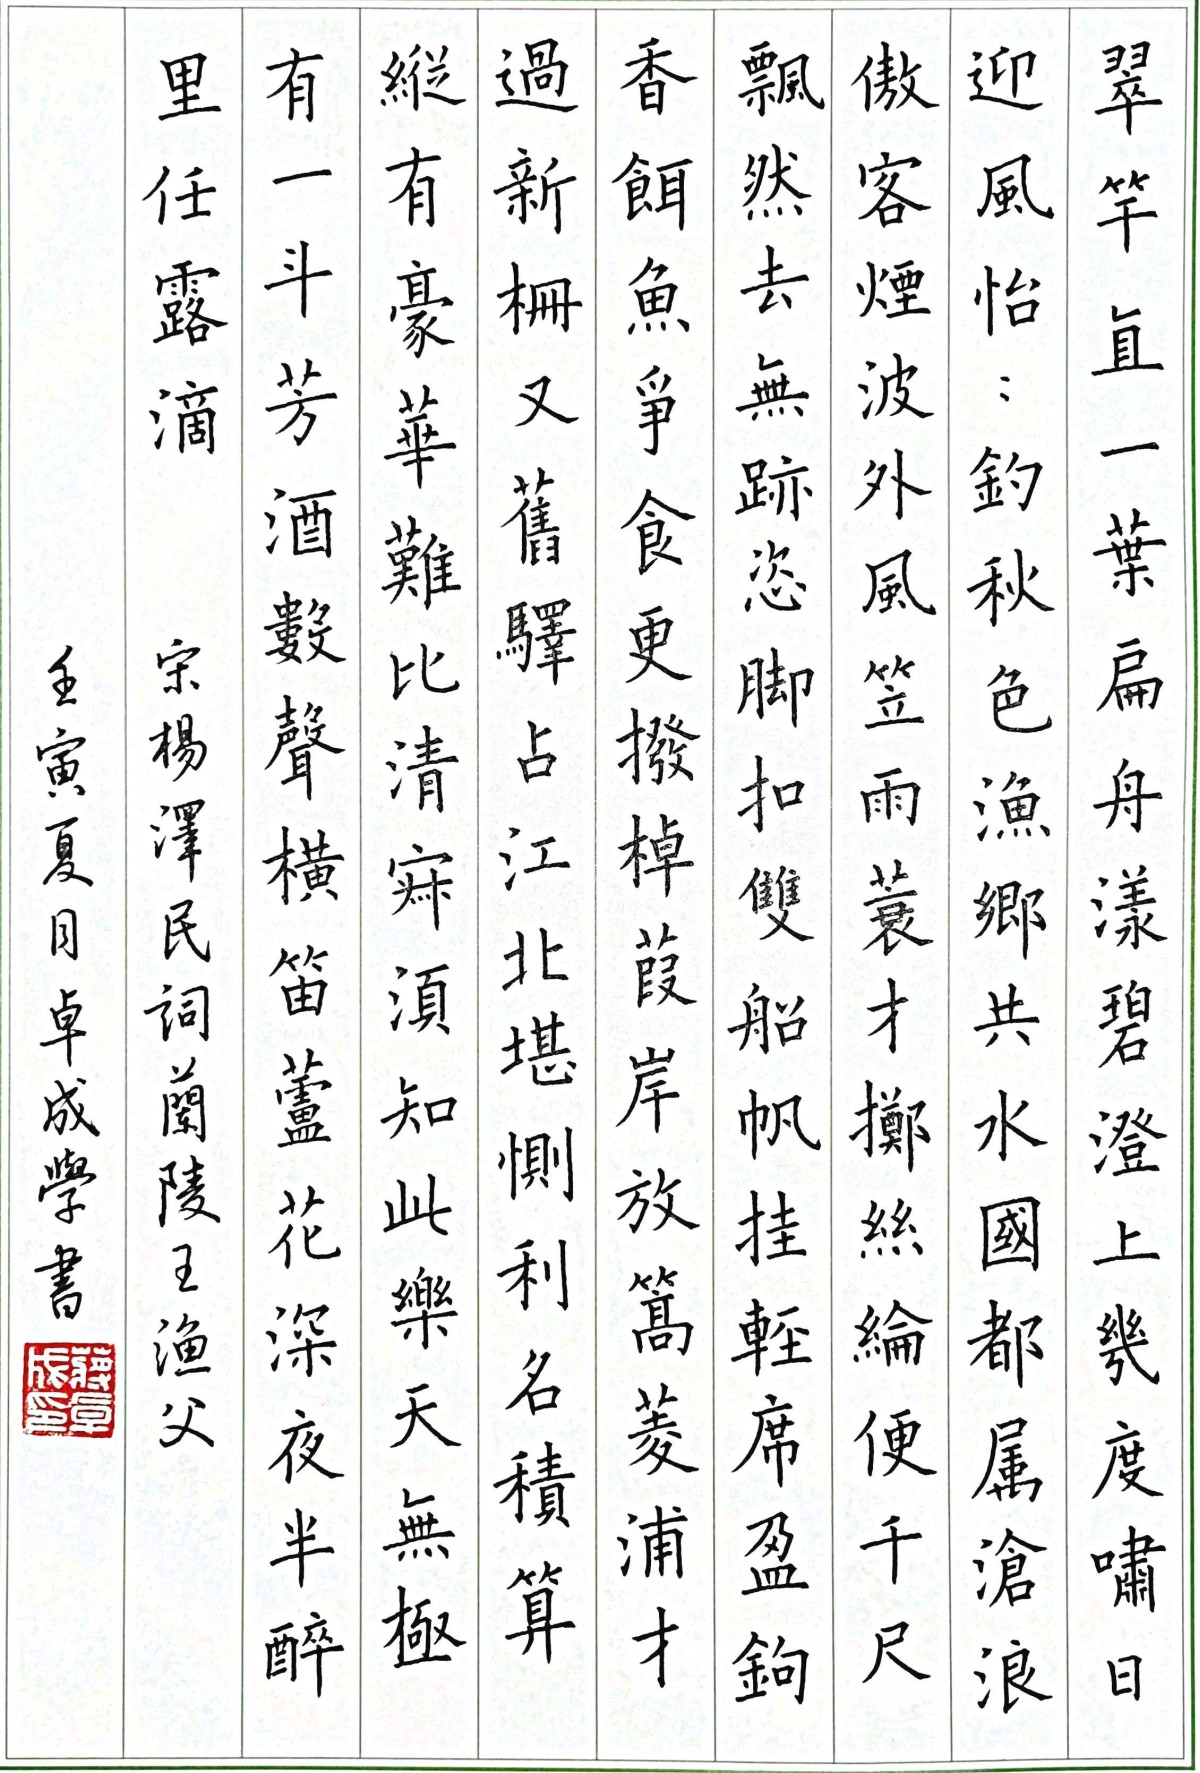 翠竿直一葉扁舟漾碧澄上幾度嘯日
迎風怡:釣秋色漁鄉共水國都属滄浪
傲客煙波外風笠雨蓑才擲絲綸便千尺
飄然去無跡恣脚扣雙船帆挂輕席盈鉤
香餌魚爭食更撥棹葭岸放篙菱浦才
過新柵又舊驛占江北堪惻利名積算
縱有豪華難比清寐須知此樂天無極
有一斗芳酒數聲橫笛蘆花深夜半醉
里任露滴
宋楊澤民詞蘭陵王漁父
壬寅夏月卓成學書